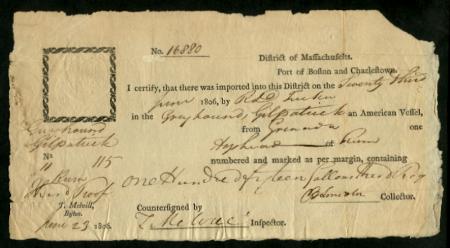 No. 16880
District of Massachusetts.
Port of Boston and Charlestown.
I certify, that there was imported into this District on the Twenty third
June 1806, by R&D Tucker
in the Greyhound, Gilpatrick an American Vessel,
from Grenada one
Hogshead of Rum
numbered and marked as per margin, containing
one Hundred fifteen Gallons third
Collector.
Countersigned by
T. Melvill Inspector.
Greyhound
Gilpatrick
No
" 115
Rum
Third Proof
T. Melvill,
Inspr.
June 23 1806.